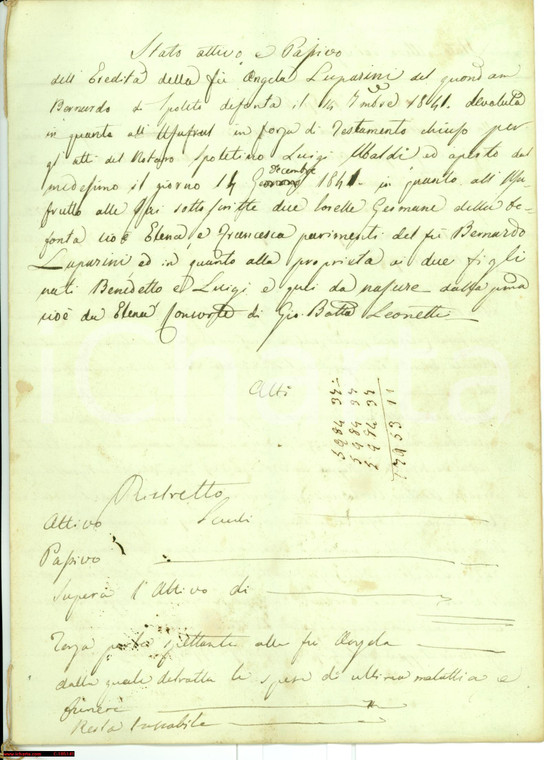 Stato attivo e Passivo
dell'Eredità della fù Angela Luparini del quondam
Bernardo di Spoleto defonta il 14 Xmbre 1841. devoluta
in quanto all'Usufrutto in forza di Testamento chiuso per
gl'atti del Notaro Spoletino Luigi Ubaldi ed aperto dal
medesimo il giorno 14 Decembre 1841. in quanto all'Usu
frutto alle qui sottoscritte due sorelle Germane della de
fonta cioè Elena e Francesca parimenti del fù Bernardo
Luparini ed in quanto alla proprietà ai due figli
nati Benedetto e Luigi e quei da nascere dalla prima
cioè da Elena Consorte di Gio. Batta Leonetti
Atti
5984 37
5984 37
5984 37
17953 11
Ristretto
Attivo Scudi
Passivo
Supera l'Attivo di
Terza parte spettante alla fù Angela
dalla quale detratta le spese di ultima malattia e
funere
Resta
iCharta